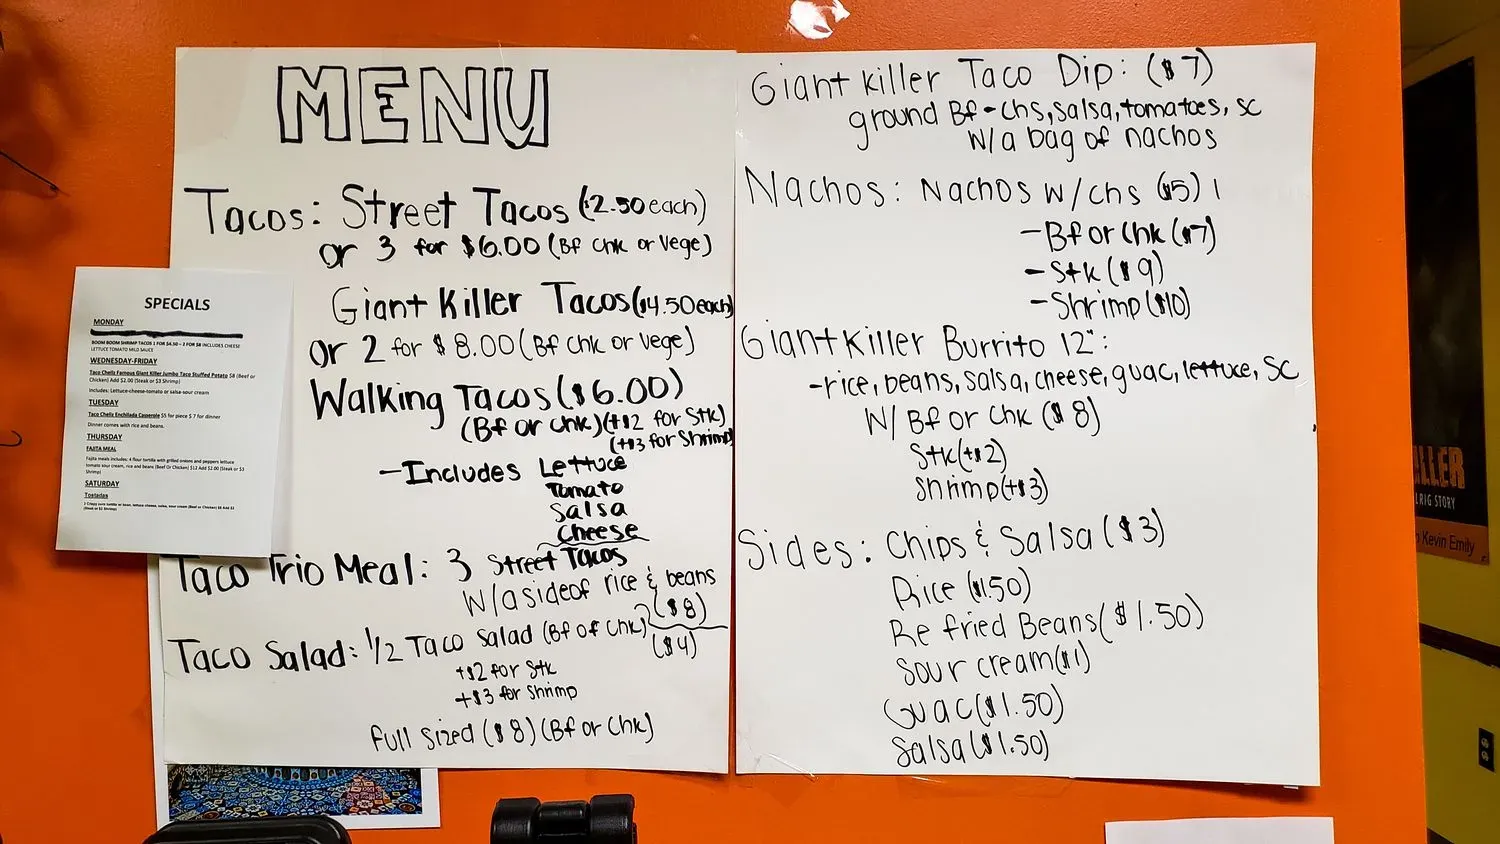 MENU
Tacos: Street Tacos ($2.50 each)
or 3 for $6.00 (Bf Chk or Vege)
Giant Killer Tacos ($4.50 each)
or 2 for $8.00 (Bf Chk or Vege)
Walking Tacos ($6.00)
(Bf or Chk) (+$2 for Stk)
(+$3 for Shrimp)
-Includes Lettuce
Tomato
Salsa
Cheese
Taco Trio Meal: 3 Street Tacos
W/a side of rice & beans
($8)
Taco Salad: 1/2 Taco Salad (Bf of Chk)
($4)
+$2 for Stk
+$3 for Shrimp
Full Sized ($8) (Bf or Chk)
SPECIALS
MONDAY
BOOM BOOM SHRIMP TACOS 1 FOR $4.50 – 2 FOR $8 INCLUDES CHEESE
LETTUCE TOMATO MILD SAUCE
WEDNESDAY-FRIDAY
Taco Chelis Famous Giant Killer Jumbo Taco Stuffed Potato $8 (Beef or
Chicken) Add $2.00 (Steak or $3 Shrimp)
Includes: Lettuce-cheese-tomato or salsa-sour cream
TUESDAY
Taco Chelis Enchilada Casserole $5 for piece $ 7 for dinner
Dinner comes with rice and beans.
THURSDAY
FAJITA MEAL
Fajita meals includes: 4 flour tortilla with grilled onions and peppers lettuce
tomato sour cream, rice and beans (Beef Or Chicken) $12 Add $2.00 (Steak or $3
Shrimp)
SATURDAY
Tostadas
Giant Killer Taco Dip: ($7)
ground Bf - chs, salsa, tomatoes, sc
W/a bag of nachos
Nachos: Nachos w/chs ($5)
- Bf or Chk ($7)
- Stk ($9)
- Shrimp ($10)
Giant Killer Burrito 12":
-rice, beans, salsa, cheese, guac, lettuce, SC
W/ Bf or Chk ($8)
Stk (+$2)
Shrimp (+$3)
Sides: Chips & Salsa ($3)
Rice ($1.50)
Refried Beans ($1.50)
Sour cream ($1)
Guac ($1.50)
Salsa ($1.50)
RIG STORY
Kevin Emily